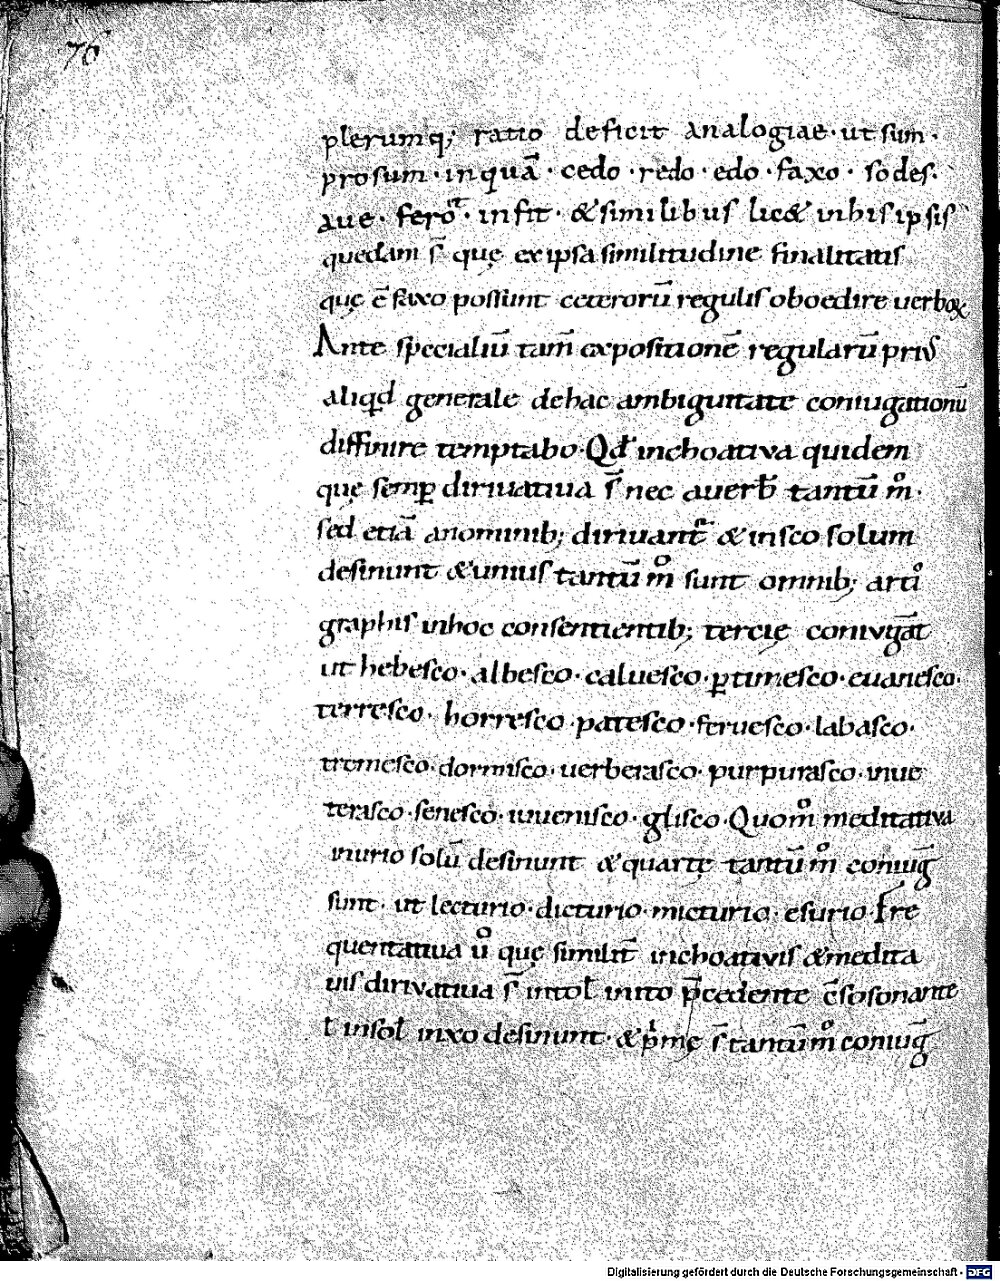 76
plerumq; ratio deficit analogiae · ut sum ·
prosum · inquā · cedo · redo · edo · faxo · sodes ·
aue · fero · infit · & similibus lic& inhis ipsis
quedam s̄ quę exipsa similitudine finalitatis
quę ē faxo possunt ceterorū regulis oboedire uerboꝝ
Ante specialiū tam̄ expositionē regularū prius
aliqd generale dehac ambiguitate coniugationū
diffinire temptabo · Qđ inchoativa quidem
quę semꝑ diriuatiua s̄ nec auerƀ tantū m̊ ·
sed etiā anominib; diriuant̄ & insco solum
desinunt & unius tantū m̊ sunt omnib; arti
graphis inhoc consentientib; tercię coniugat̄
ut hebesco · albesco · caluesco · ꝑtimesco · euanesco ·
terresco · horresco · patesco · feruesco · labasco ·
tremesco · dormisco · uerberasco · purpurasco · inue
terasco · senesco · iuuenisco · glisco · Quom̊ meditativa
inurio solū desinunt & quartę tantū m̊ coniuḡ
sunt · ut lecturio · dicturio · micturio · esurio · Fre
quentatiua ů quę similit̄ inchoativis & medita
uis dirivatiua s̄ intoł inito p̄cedente c̄sosonante
ł insoł inxo desinunt · & pͥmę s̄ tantū m̊ coniuḡ
Digitalisierung gefördert durch die Deutsche Forschungsgemeinschaft - DFG